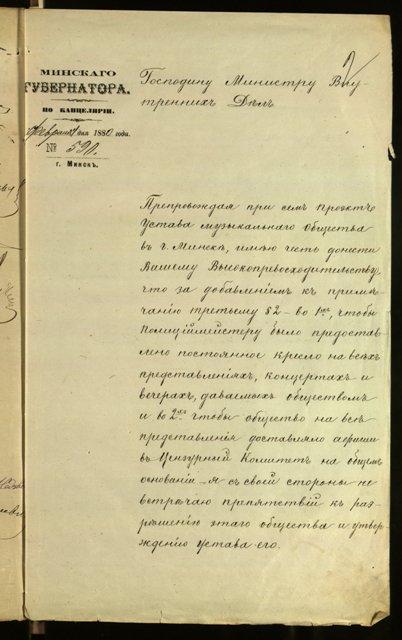 МИНСКАГО
ГУБЕРНАТОРА.
ПО КАНЦЕЛЯРІИ.
Февраля дня 1880 года.
№ 590.
г. Минскъ.
2
Господину Министру Вну-
треннихъ Дѣлъ
Препровождая при семъ проэктъ
Устава музыкальнаго общества
въ г. Минскѣ, имѣю честь донести
Вашему Высокопревосходительству,
что за добавленіемъ къ примѣ-
чанію третьему § 2 – во 1хъ, чтобы
Полиціймейстеру было предостав-
лено постоянное кресло на всѣхъ
представленіяхъ, концертахъ и
вечерахъ, даваемыхъ обществомъ
и во 2хъ чтобы общество на всѣ
представленія доставляло афиши
въ Цензурный Комитетъ на общемъ
основаніи – я съ своей стороны не
встрѣчаю препятствій къ раз-
рѣшенію этаго общества и утвер-
жденію устава его.